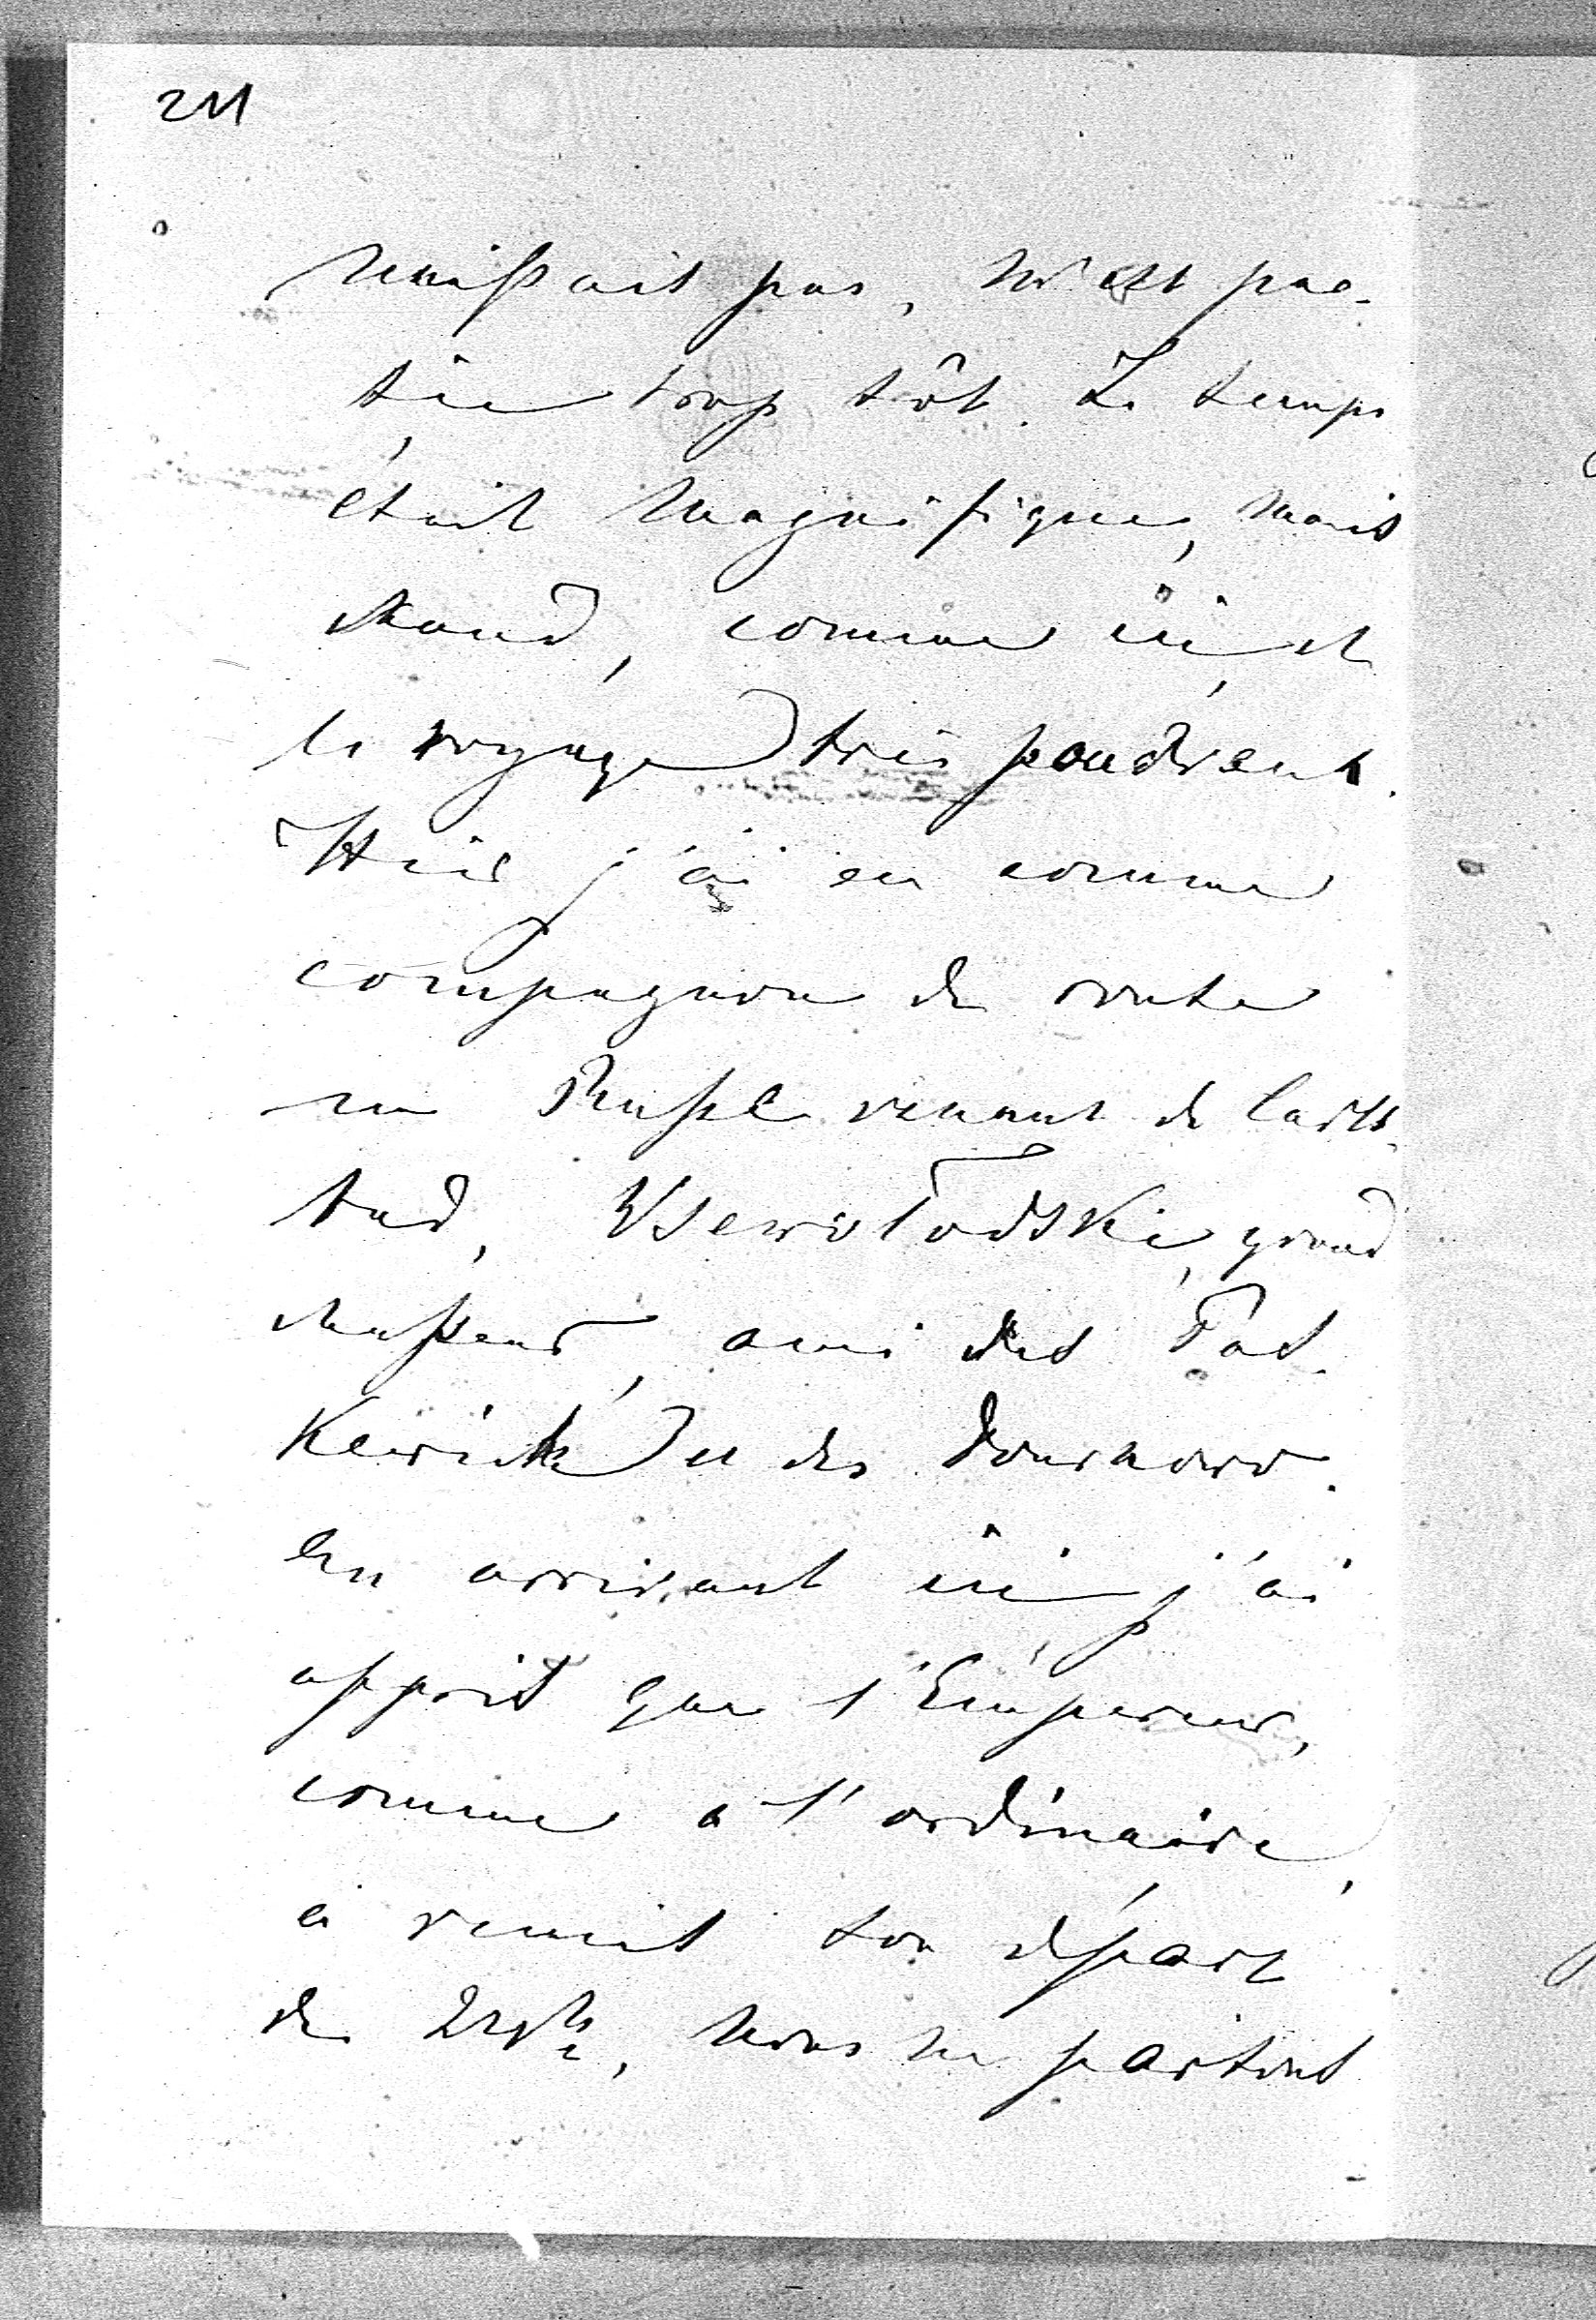 211
naissait pas, n'est par-
tie trop tôt. Le temps
était magnifique, mais
chaud, comme ici, et
le voyage très poudreux.
Hier j'ai eu comme
compagnon de route
un Russe venant de Carls-
bad, Wsewolodski, grand
chasseur, ami des
et des Dournowo.
En arrivant ici j'ai
appris que l'Empereur,
comme à l'ordinaire,
a remis son départ
de 24h, nous ne partons